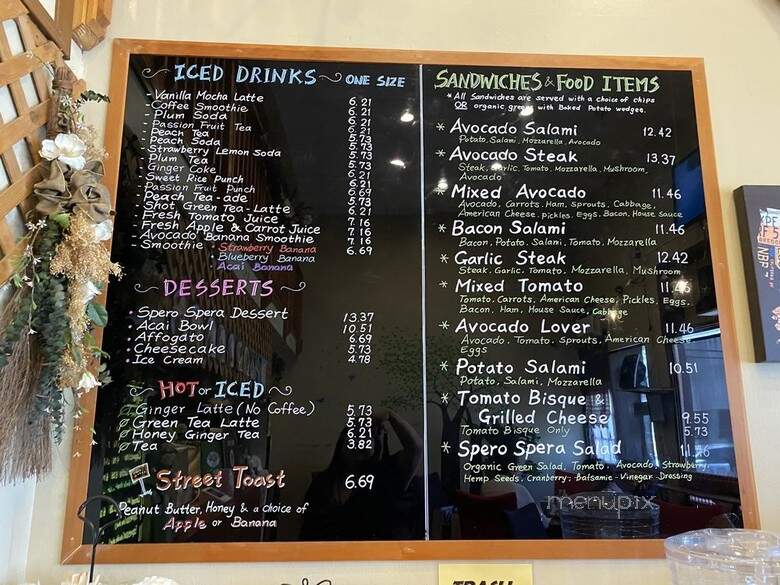 ICED DRINKS ONE SIZE
- Vanilla Mocha Latte 6.21
- Coffee Smoothie 6.21
- Plum Soda 6.21
- Passion Fruit Tea 6.21
- Peach Tea 5.73
- Peach Soda 5.73
- Strawberry Lemon Soda 5.73
- Plum Tea 5.73
- Ginger Coke 6.21
- Sweet Rice Punch 6.21
- Passion Fruit Punch 6.69
- Peach Tea-ade 5.73
- Shot Green Tea-Latte 6.21
- Fresh Tomato Juice 7.16
- Fresh Apple & Carrot Juice 7.16
- Avocado Banana Smoothie 7.16
- Smoothie • Strawberry Banana 6.69
• Blueberry Banana
• Acai Banana
DESSERTS
• Spero Spera Dessert 13.37
• Acai Bowl 10.51
• Affogato 6.69
• Cheesecake 5.73
• Ice Cream 4.78
HOT or ICED
Ginger Latte (No Coffee) 5.73
Green Tea Latte 5.73
Honey Ginger Tea 6.21
Tea 3.82
Street Toast 6.69
Peanut Butter, Honey & a choice of
Apple or Banana
SANDWICHES & FOOD ITEMS
* All Sandwiches are served with a choice of chips
OR organic greens with Baked Potato wedges.
* Avocado Salami 12.42
Potato, Salami, Mozzarella, Avocado
* Avocado Steak 13.37
Steak, Garlic, Tomato, Mozzarella, Mushroom,
Avocado
* Mixed Avocado 11.46
Avocado, Carrots, Ham, Sprouts, Cabbage,
American Cheese, Pickles, Eggs, Bacon, House Sauce
* Bacon Salami 11.46
Bacon, Potato, Salami, Tomato, Mozzarella
* Garlic Steak 12.42
Steak, Garlic, Tomato, Mozzarella, Mushroom
* Mixed Tomato 11.46
Tomato, Carrots, American Cheese, Pickles, Eggs,
Bacon, Ham, House Sauce, Cabbage
* Avocado Lover 11.46
Avocado, Tomato, Sprouts, American Cheese,
Eggs
* Potato Salami 10.51
Potato, Salami, Mozzarella
* Tomato Bisque &
Grilled Cheese 9.55
Tomato Bisque Only 5.73
* Spero Spera Salad 11.46
Organic Green Salad, Tomato, Avocado, Strawberry,
Hemp Seeds, Cranberry, Balsamic-Vinegar Dressing
menupix
TRASH